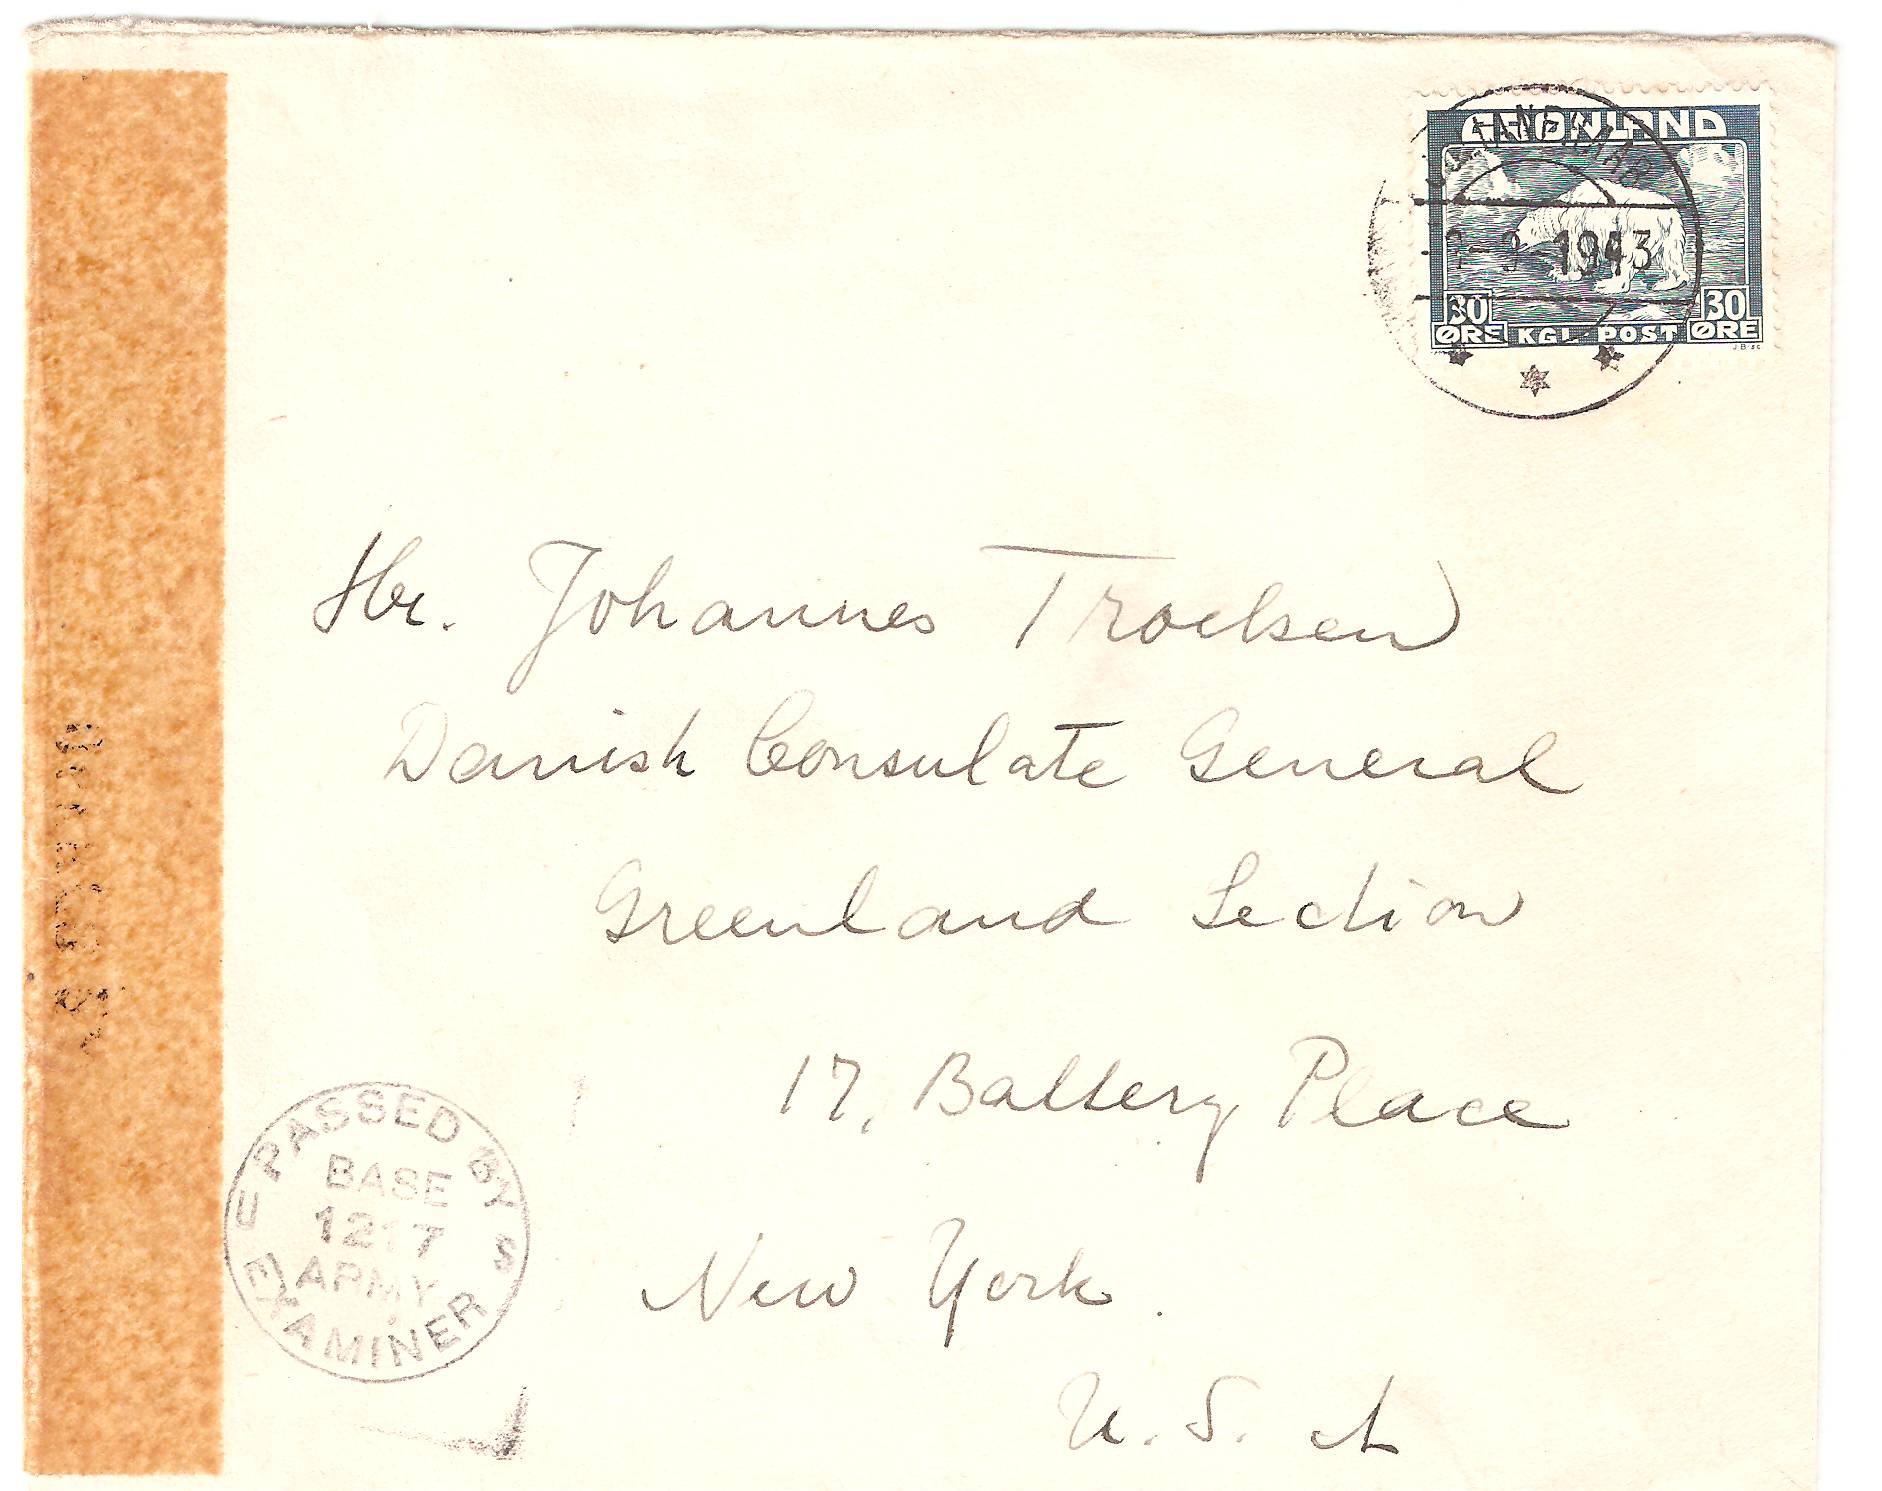 GRØNLAND
1943
30 ØRE KGL POST 30 ØRE
Hr. Johannes Troelsen
Danish Consulate General
Greenland Section
17, Battery Place
New York.
U. S. A
PASSED BY
U S
BASE
ARMY
EXAMINER